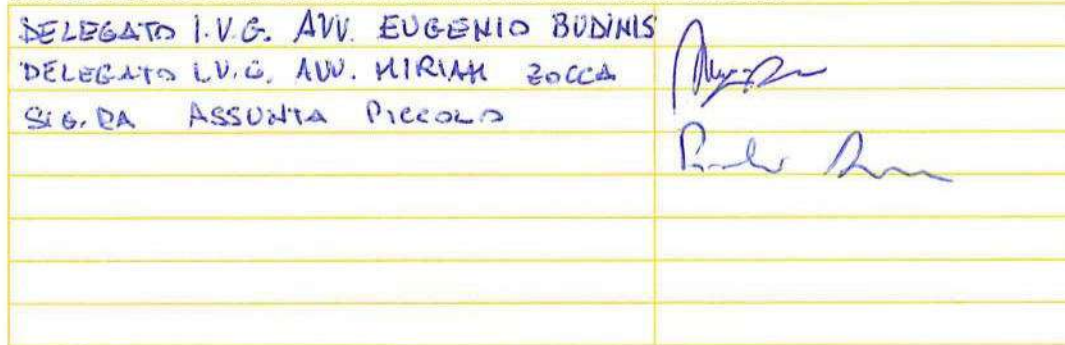 DELEGATO I.V.G. AVV. EUGENIO BUDINIS
DELEGATO I.V.G. AVV. MIRIAM ZOCCA
SIG.RA ASSUNTA PICCOLO